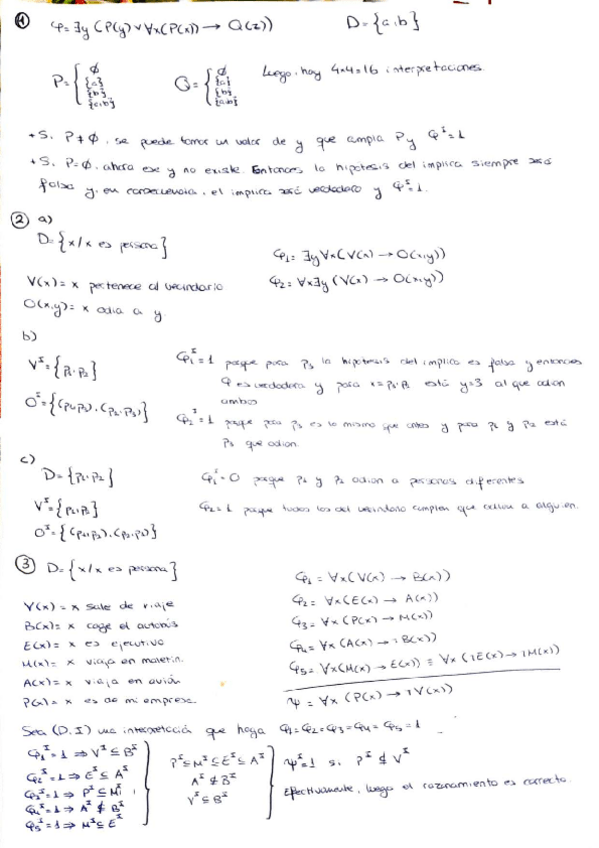 ① φ= ∃y (P(y) ∨ ∀x(P(x)) → Q(z)) D={a,b}
P={ ∅ {a} {b} {a,b} Q={ ∅ {a} {b} {a,b} Luego, hay 4x4=16 interpretaciones.
+ Si P≠∅, se puede tomar un valor de y que cumpla P y φᴵ=1
+ Si P=∅, ahora ese y no existe. Entonces la hipotesis del implica siempre será
falsa y, en consecuencia, el implica será verdadero y φᴵ=1.
② a)
D={x/x es persona} φ₁= ∃y∀x(V(x) → O(x,y))
V(x)= x pertenece al vecindario φ₂= ∀x∃y(V(x) → O(x,y))
O(x,y)= x odia a y.
b)
Vᴵ={p₁,p₂} φ₁ᴵ=1 porque para p₃ la hipotesis del implica es falsa y entonces
φ es verdadera y para x=p₁,p₂ está y=3 al que odian
Oᴵ={(p₁,p₃),(p₂,p₃)} ambos
φ₂ᴵ=1 porque para p₃ es lo mismo que antes y para p₁ y p₂ está
p₃ que odian.
c)
D={p₁,p₂} φ₁ᴵ=0 porque p₁ y p₂ odian a personas diferentes
Vᴵ={p₁,p₂} φ₂=1 porque todos los del vecindario cumplen que odian a alguien.
③ D={x/x es persona} φ₁= ∀x(V(x) → B(x))
V(x)= x sale de viaje φ₂= ∀x(E(x) → A(x))
B(x)= x coge el autobús φ₃= ∀x(P(x) → M(x))
E(x)= x es ejecutivo φ₄= ∀x(A(x) → ¬B(x))
M(x)= x viaja en maletín. φ₅= ∀x(M(x) → E(x)) ≡ ∀x(¬E(x) → ¬M(x))
A(x)= x viaja en avión
P(x)= x es de mi empresa. ψ= ∀x (P(x) → ¬V(x))
Sea (D,I) una interpretación que haga φ₁=φ₂=φ₃=φ₄=φ₅=1
φ₁ᴵ=1 ⇒ Vᴵ⊆Bᴵ
φ₂ᴵ=1 ⇒ Eᴵ⊆Aᴵ Pᴵ⊆Mᴵ⊆Eᴵ⊆Aᴵ ψᴵ=1 si Pᴵ⊄Vᴵ
φ₃ᴵ=1 ⇒ Pᴵ⊆Mᴵ Aᴵ⊄Bᴵ
φ₄ᴵ=1 ⇒ Aᴵ⊄Bᴵ Vᴵ⊆Bᴵ Efectivamente, luego el razonamiento es correcto.
φ₅ᴵ=1 ⇒ Mᴵ⊆Eᴵ